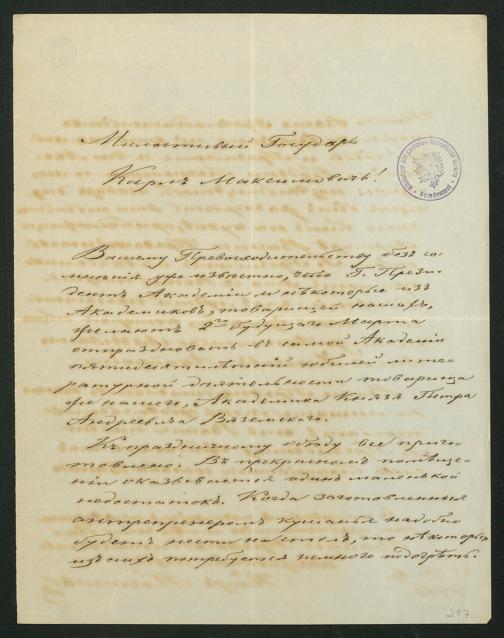 Милостивый Государь
Карлъ Максимовичъ!
Вашему Превосходительству безъ со-
мнѣнія уже извѣстно, что Г. Прези-
дентъ Академіи и нѣкоторые изъ
Академиковъ, товарищей нашихъ,
желаютъ 2го будущаго Марта
отпраздновать въ самой Академіи
пятидесятилѣтній юбилей лите-
ратурной дѣятельности товарища
же нашего, Академика Князя Петра
Андреевича Вяземскаго.
Къ праздничному обѣду все приго-
товлено. Въ прекрасномъ помѣще-
ніи оказывается одинъ маленькой
недостатокъ. Когда заготовленныя
антрепренеромъ кушанья надобно
будетъ нести на столъ, то нѣкоторыя
изъ нихъ потребуется немного подогрѣть.
217